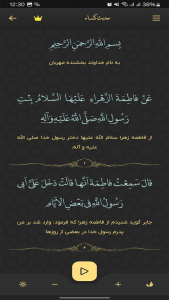 12:30
38%
حدیث کساء
بِسمِ اللهِ الرَّحمنِ الرَّحیمِ
به نام خداوند بخشنده مهربان
عَنْ فاطِمَةَ الزَّهْراءِ عَلَیْهَا السَّلامُ بِنْتِ
رَسُولِ اللهِ صَلَّی اللهُ عَلَیْهِ وَآلِهِ
از فاطمه زهرا سلام الله علیها دختر رسول خدا صلی الله
علیه و آله.
قالَ سَمِعْتُ فاطِمَةَ أَنَّها قالَتْ دَخَلَ عَلَیَّ أَبی
رَسُولُ اللهِ فی بَعْضِ الأَیّامِ
جابر گوید شنیدم از فاطمه زهرا که فرمود: وارد شد بر من
پدرم رسول خدا در بعضی از روزها
ف